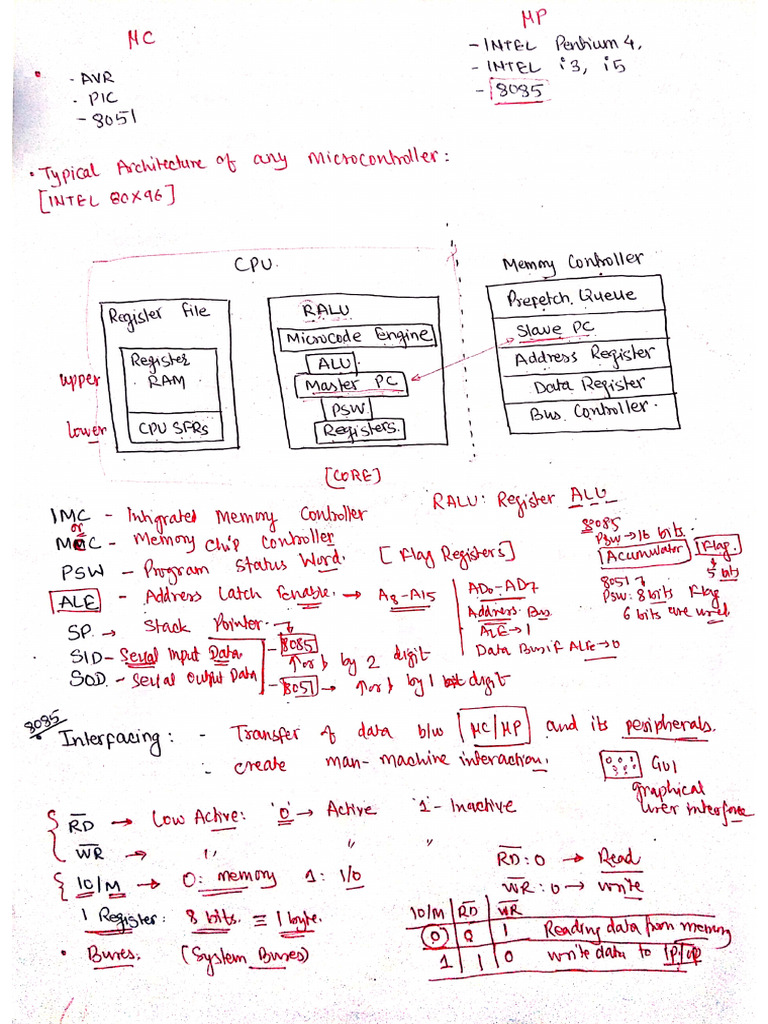 MC
MP
- AVR
- PIC
- 8051
- INTEL Pentium 4.
- INTEL i3, i5
- 8085
• Typical Architecture of any Microcontroller:
[INTEL 80X96]
CPU
Register File
Register
RAM
CPU SFRs
upper
lower
RALU
Microcode Engine
ALU
Master PC
PSW
Registers.
[CORE]
Memory Controller
Prefetch Queue
Slave PC
Address Register
Data Register
Bus Controller.
RALU: Register ALU
IMC - Inhigrated Memory Controller
or
MCC - Memory Chip Controller
PSW - Program Status Word. [Flag Registers]
ALE - Address Latch Enable. → A8-A15
AD0-AD7
Address Bus
ALE→1
Data Bus if ALE→0
8085
PSW→16 bits.
Acumulator Flag.
5 bits
8051
PSW: 8 bits Flag
6 bits are used
SP → Stack Pointer.
- 8085
↑ or ↓ by 2 digit
- 8051 → ↑ or ↓ by 1 digit
SID - Serial Input Data
SOD - Serial Output Data
8085
Interfacing: - Transfer of data b/w MC/MP and its peripherals.
- create man-machine interaction.
GUI
graphical
user interface
RD → Low Active: '0' → Active '1' - Inactive
WR → " " "
IO/M → 0: memory 1: I/O
RD: 0 → Read
WR: 0 → write
1 Register: 8 bits. ≡ 1 byte.
• Buses. (System Buses)
IO/M RD WR
0 0 1 Reading data from memory
1 1 0 write data to IP/OP